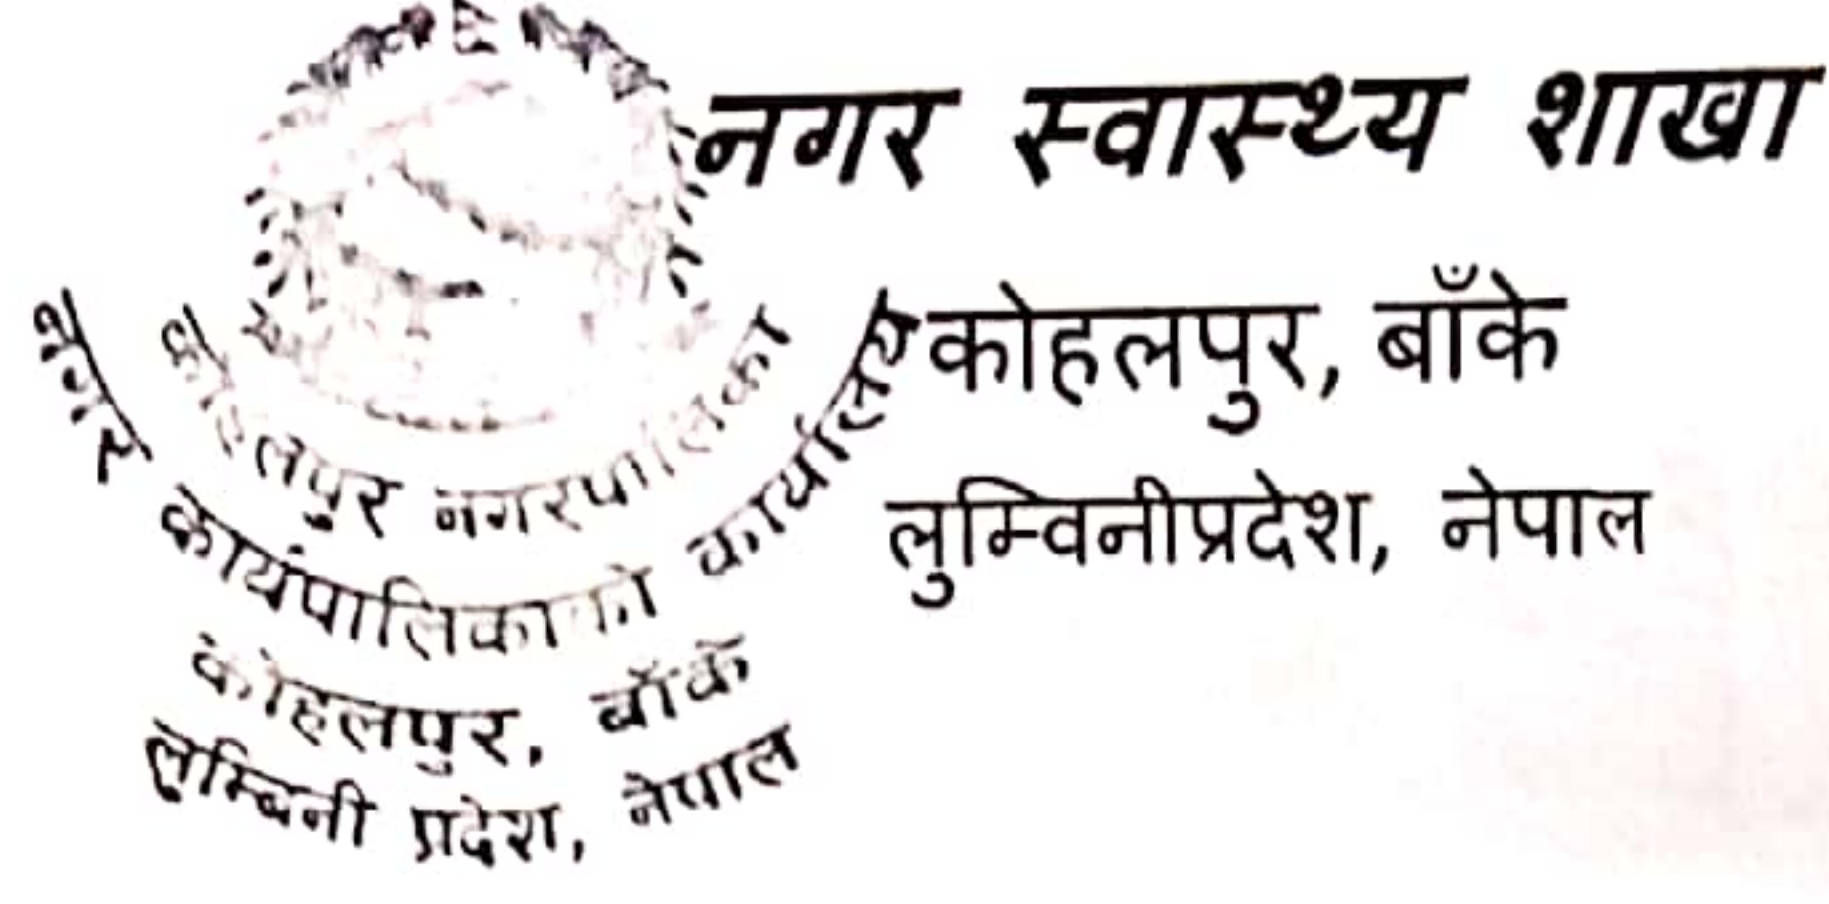 नगर स्वास्थ्य शाखा
कोहलपुर, बाँके
लुम्विनीप्रदेश, नेपाल
कोहलपुर नगरपालिका
नगर कार्यपालिकाको कार्यालय
कोहलपुर, बाँके
लुम्बिनी प्रदेश, नेपाल